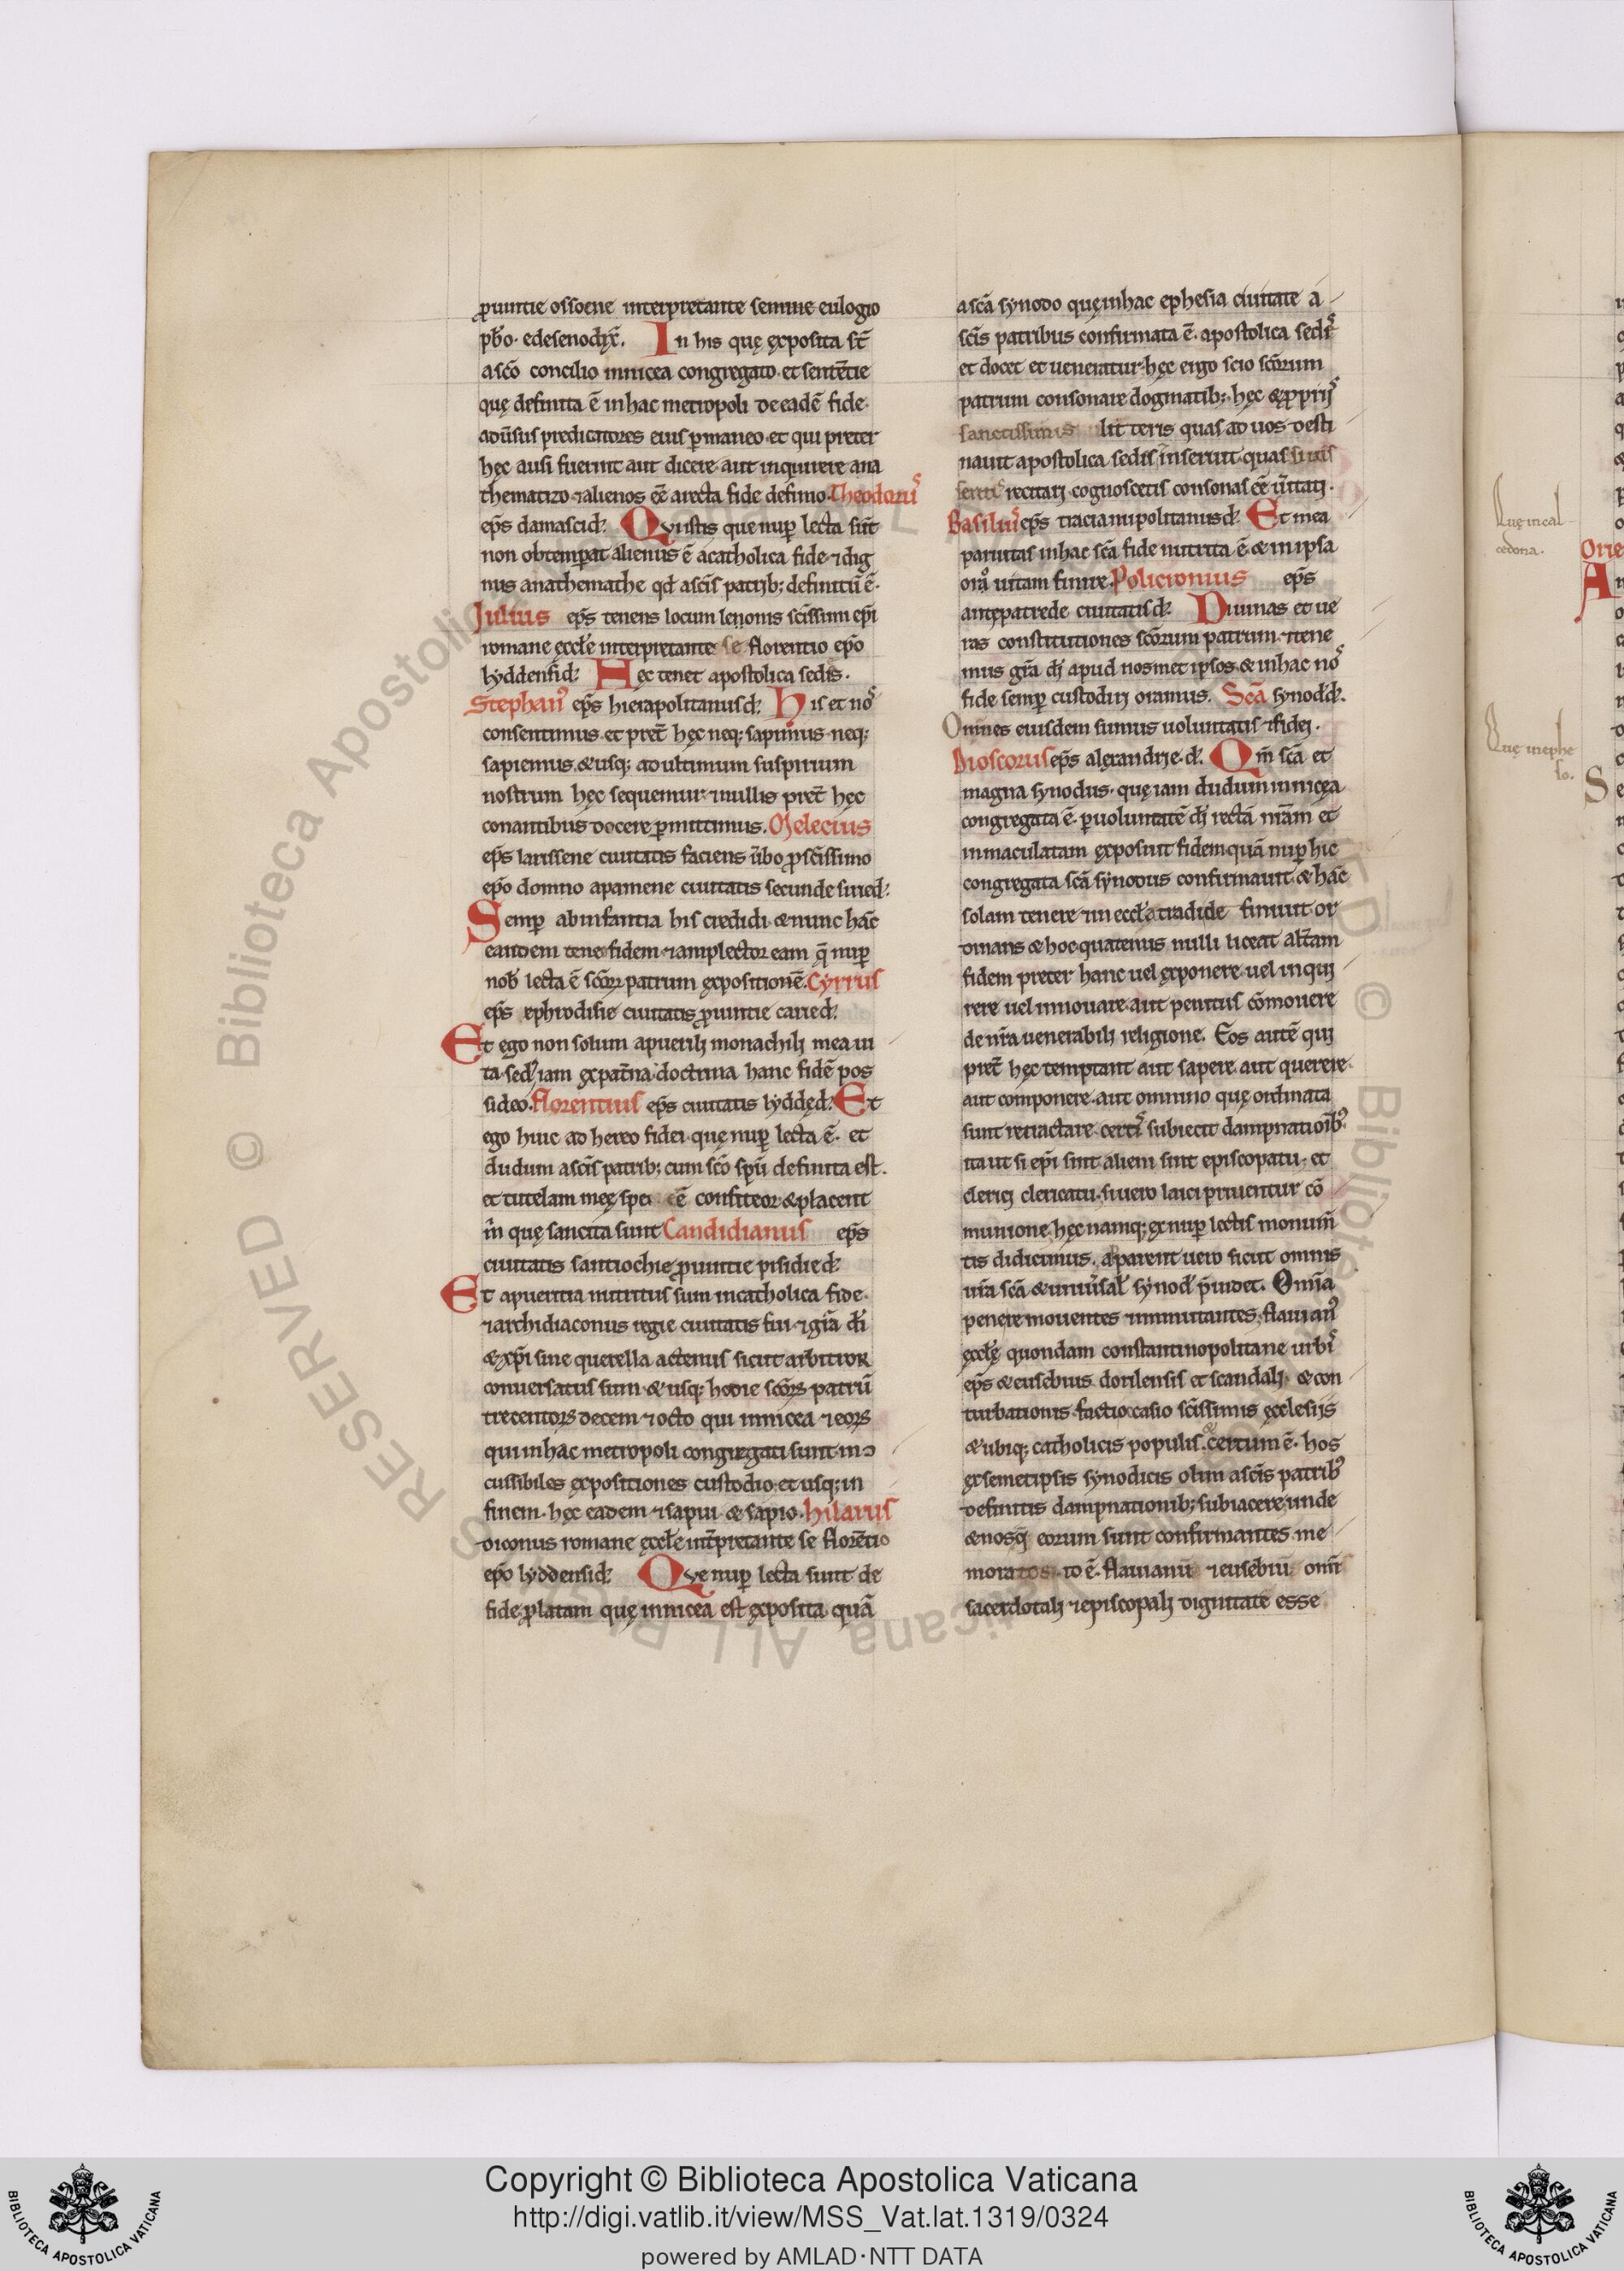 ꝓuintie ossoene interpretante semine eulogio
pb̄ro. edesenodix̄. In his quę exposita st̄
a sc̄o concilio in nicea congregato. et sentētie
quę definita ē in hac metropoli de eadē fide.
aduersus predicatores eius ꝑmaneo. et qui preter
hęc ausi fuerint aut dicere aut inquirere ana
thematizo ⁊ alienos eē a recta fide definio. Theodorus
ep̄s damasci d. Qui istis que nuꝑ lecta sūt
non obtemꝑat alienus ē a catholica fide ⁊ dig
nus anathemathe qd̄ a sc̄is patrib; definitū ē.
Iulius ep̄s tenens locum lenonis sc̄issimi ep̄i
romane ęccl̄e interpretante se florentio ep̄o
lyddensi d. Hęc tenet apostolica sedis.
Stephanus ep̄s hierapolitanus d. His et nos
consentimus. et pret̄ hęc neq; sapuimus neq;
sapiemus. & usq; ad ultimum suspirium
nostrum hęc sequemur ⁊ nullis pret̄ hęc
conantibus docere ꝑmittimus. Melecius
ep̄s larissene ciuitatis faciens ūbo ꝓ sc̄issimo
ep̄o domno apamene ciuitatis secunde siried.
Semꝑ ab infantia his credidi & nunc hāc
eandem teneo fidem ⁊ amplector eam q̄ nuꝑ
nob̄ lecta ē sc̄oꝝ patrum expositionē. Cyrrus
ep̄s ephrodisie ciuitatis ꝓuintie carie d.
Et ego non solum a puerili monachili mea ui
ta. sed iam ex pat̄na doctrina hanc fidē pos
sideo. Florentius ep̄s ciuitatis lyddę d. Et
ego huic adhereo fidei quę nuꝑ lecta ē. et
dudum a sc̄is patrib; cum sc̄o sp̄u definita est.
et tutelam meę spei eē confiteor & placent
m̄ quę sancita sunt Candidianus ep̄s
ciuitatis santiochie ꝓuintie pisidie d.
Et a pueritia nutritus sum in catholica fide.
⁊ archidiaconus regie ciuitatis fui ⁊ gr̄a di
& xp̄i sine querella actenus sicut arbitror
conuersatus sum & usq; hodie sc̄oꝝ patrū
trecentoꝝ decem ⁊ octo qui in nicea ⁊ eoꝝ
qui in hac metropoli congregati sunt in
cussibiles expositiones custodio. et usq; in
finem. hęc eadem ⁊ sapui & sapio. Hilarus
diconus romane ęccl̄e int̄pretante se florētio
ep̄o lyddensi d. Que nuꝑ lecta sunt de
fide ꝓlatam quę in nicea est exposita quā
a sc̄a synodo quę in hac ephesia ciuitate a
sc̄is patribus confirmata ē. apostolica sedis
et docet et ueneratur. hęc ergo scio sc̄orum
patrum consonare dogmatib;. hęc & ꝓpriis
sanctissimis litteris quas ad uos desti
nauit apostolica sedis inseruit quas si uis
recitari cognoscetis consonas eē ūitati.
Basilius ep̄s traciani politanus d. Et mea
paruitas in hac sc̄a fide nutrita ē & in ipsa
oro uitam finire. Policronius ep̄s
antępatrede ciuitatis d. Diuinas et ue
ras constitutiones sc̄orum patrum ⁊ tene
mus gr̄a di apud nosmet ipsos & in hac nos
fide semꝑ custodiri oramus. Sc̄a synod d.
Omnes eiusdem sumus uoluntatis ⁊ fidei.
Dioscorus ep̄s alęxandrie. d. Qm̄ sc̄a et
magna synodus. quę iam dudum in nicęa
congregata ē. ꝑ uoluntatē di rectā nr̄am et
inmaculatam exposuit fidem quā nuꝑ hic
congregata sc̄a synodus confirmauit & hāc
solam tenere in eccl̄a tradide finiuit or
dinans & hoc quatenus nulli liceat alt̄am
fidem preter hanc uel exponere uel inqui
rere uel innouare. aut penitus cōmouere
de nr̄a uenerabili religione. Eos autē qui
pret̄ hęc temptant aut sapere. aut querere
aut componere. aut omnino quę ordinata
sunt retractare. certis subiecit dampnatioīb;
ita ut si ep̄i sint alieni sint episcopatu. et
clerici clericatu. si uero laici priuentur cō
munione. hęc namq; ex nuꝑ lectis monum̄
tis didicimus. aparent uero sicut omnis
ur̄a sc̄a & uniūsal̄ synod p̄uidet. Omīa
penere mouentes ⁊ inmutantes. flauianus
ęccl̄ę quondam constantinopolitane urbis
ep̄s & eusebius dorilensis et scandali & con
turbationis facti occasio sc̄issimis ęcclesiis
& ubiq; catholicis populis. certum ē. hos
ex semetipsis synodicis olim a sc̄is patribus
definitis dampnationib; subiacere unde
& nos q̄ eorum sunt confirmantes me
moratos. to ē. flauianū ⁊ eusebiū omī
sacerdotali ⁊ episcopali dignitate esse
Quę in cal
cedona.
Quę in ephe
so.
Orie
A
S
RESERVED © Biblioteca Apostolica Vaticana ALL RIGHTS
Copyright © Biblioteca Apostolica Vaticana
http://digi.vatlib.it/view/MSS_Vat.lat.1319/0324
powered by AMLAD·NTT DATA
BIBLIOTECA APOSTOLICA VATICANA
BIBLIOTECA APOSTOLICA VATICANA